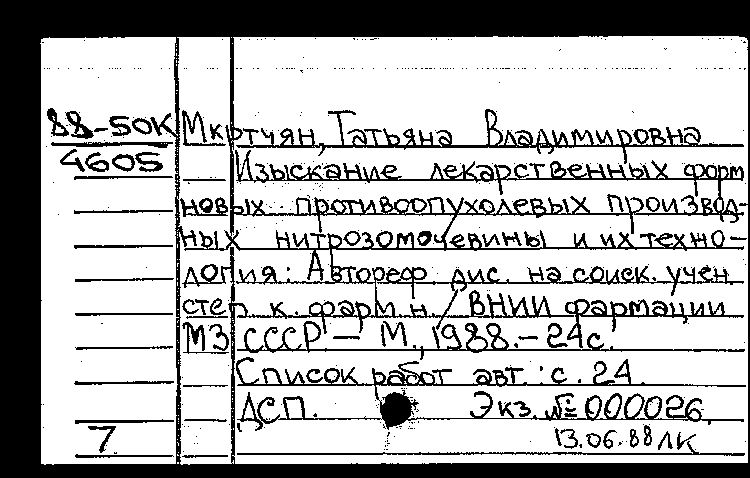 88-50К Мкртчян, Татьяна Владимировна
4605 Изыскание лекарственных форм
новых противоопухолевых производ-
ных нитрозомочевины и их техно-
логия: Автореф. дис. на соиск. учен
степ к. фарм. н. / ВНИИ фармации
МЗ СССР – М., 1988. – 24с.
Список работ авт.: с. 24.
ДСП. Экз. № 000026.
7 13.06.88 ЛК